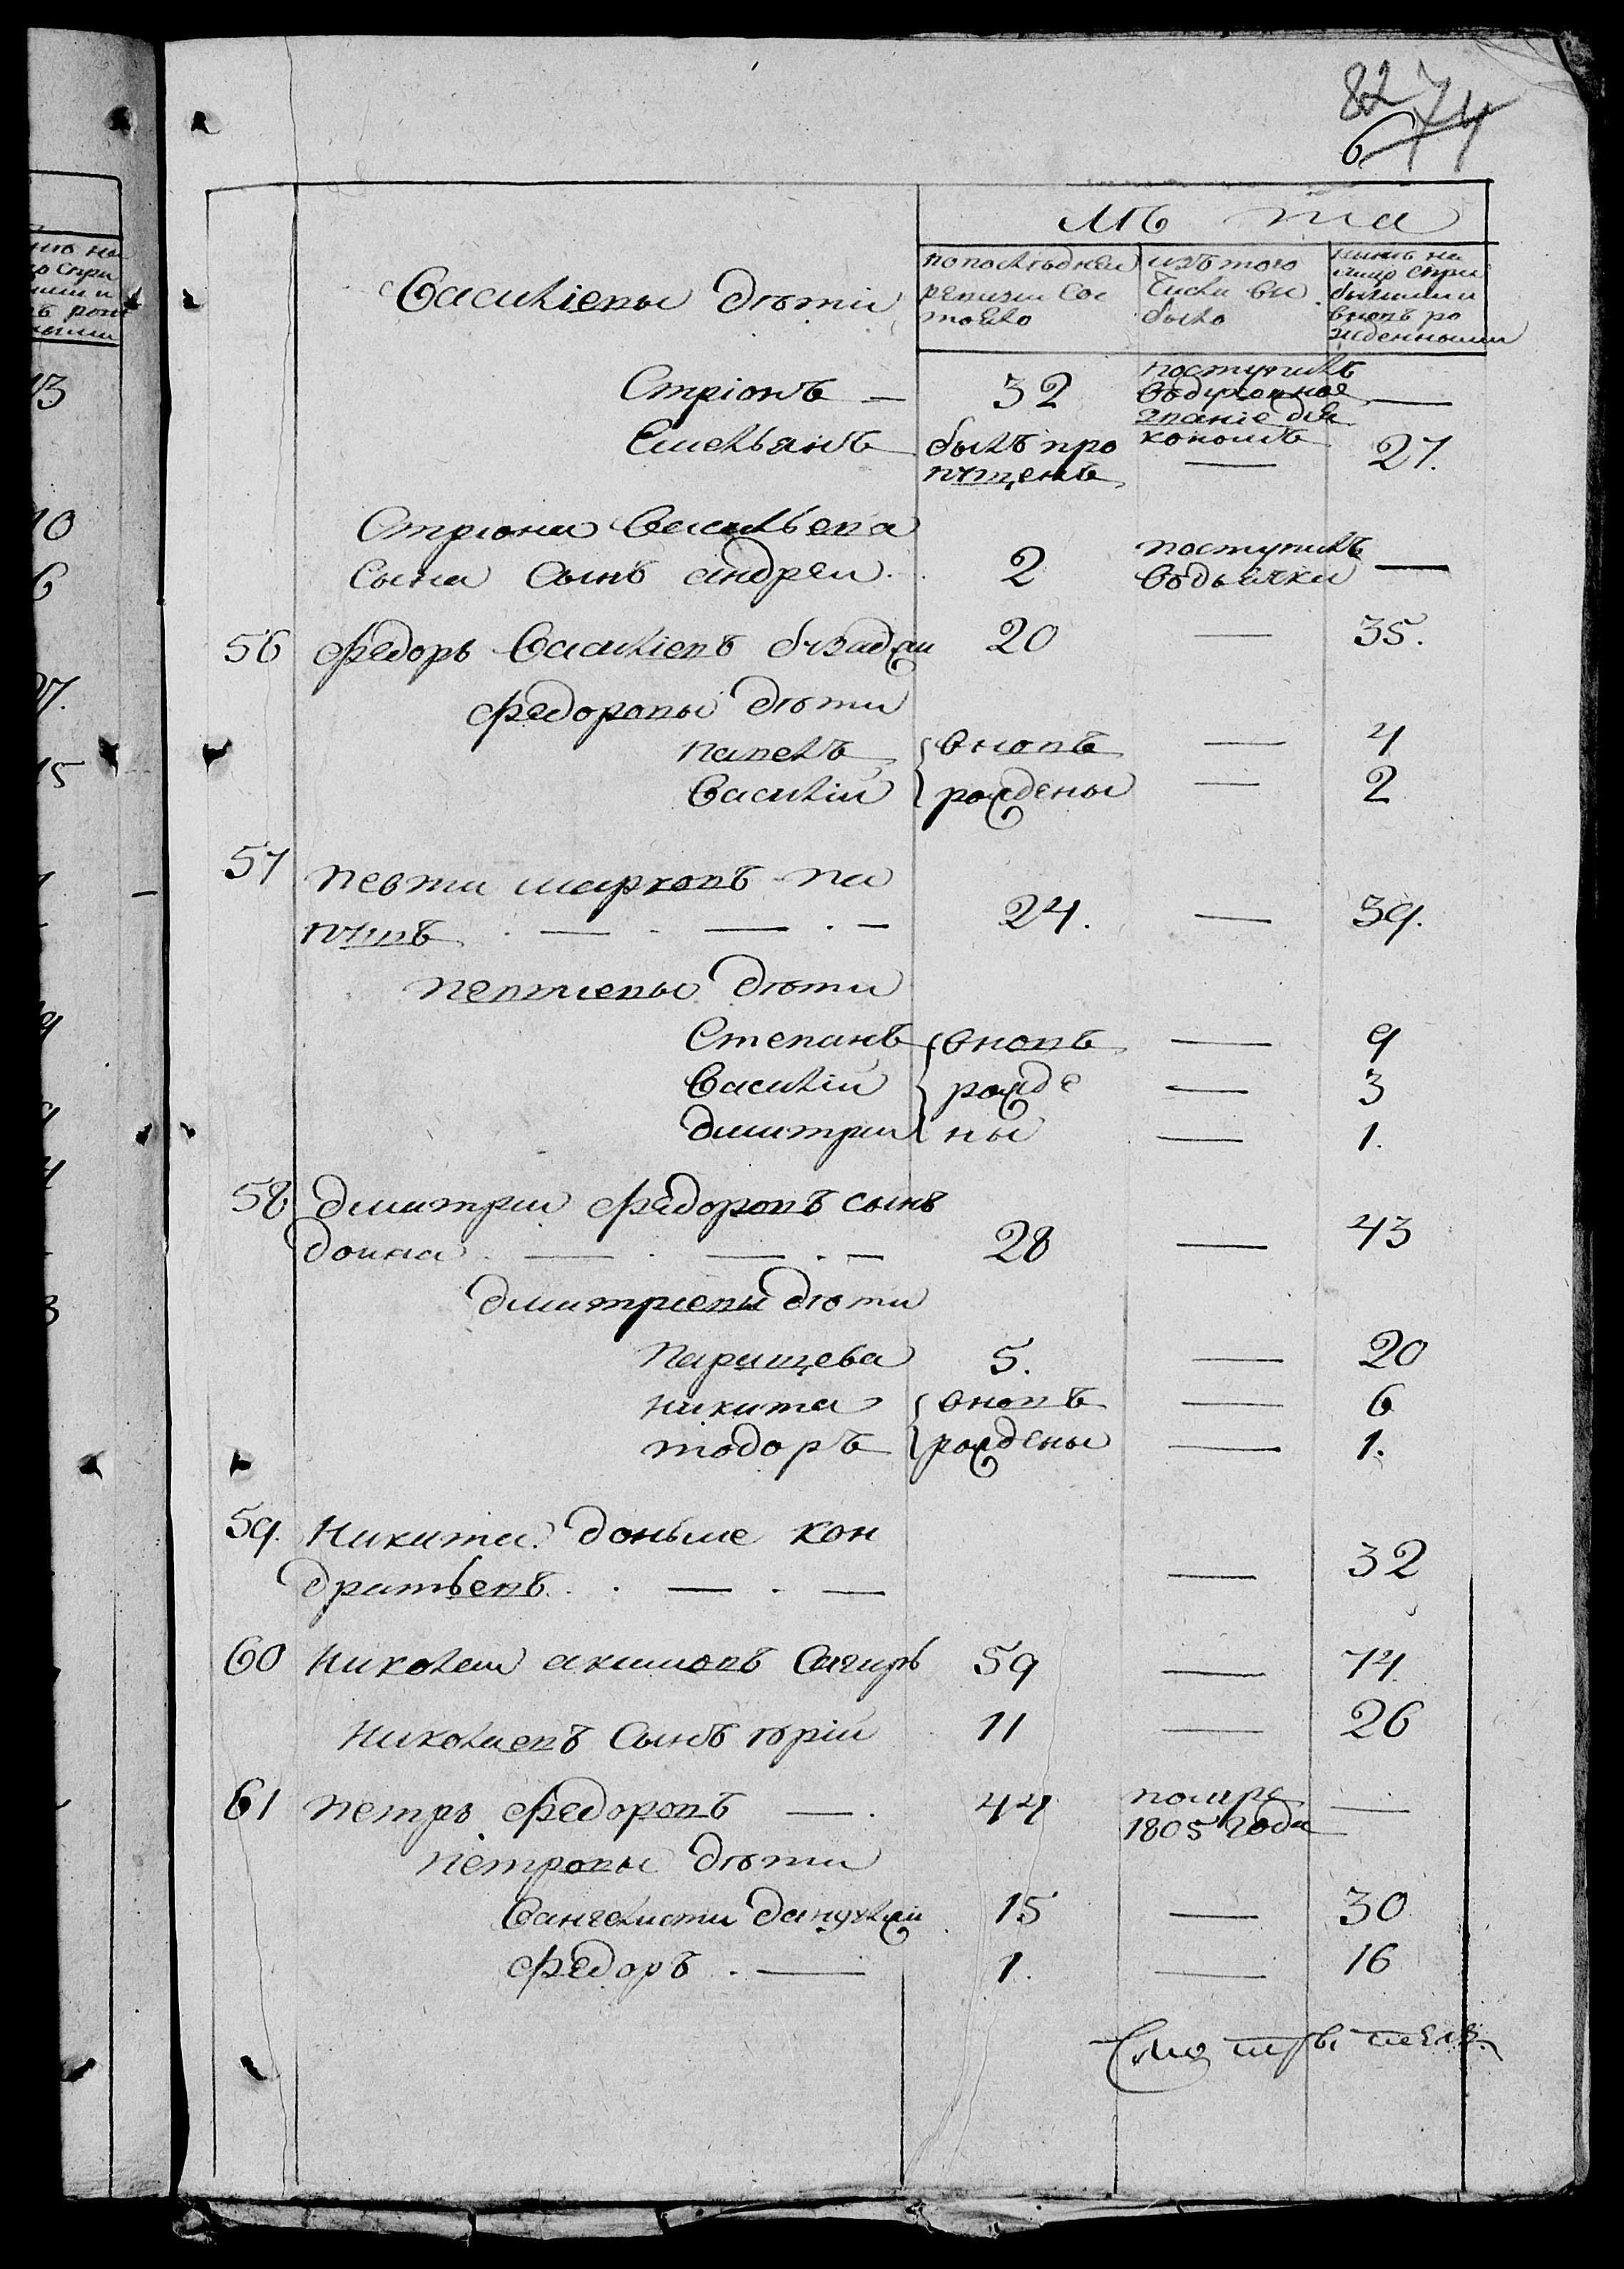 82 74
6
лѣ та
Василіевы дѣти
попоследней ревизіи состояло
изъ того числа выбыло
нынѣ на лицо съприбылыми и вновь рожденными
Стріонъ — 32 поступилъ въдуховное званіе дьякономъ —
Емельянъ былъ пропущенъ — 27.
Стриона Васильева
сына сынъ андреи 2 поступилъ въдьячки —
56 Федоръ Василіевъ бузаджи 20 — 35.
Федоровы дѣти
павелъ { вновь — 4
Василій { рождены — 2
57 певти марковъ па
пушъ 24. — 39.
певтиевы дѣти
Степанъ { вновь — 9
Василій { рожде — 3
дмитрии { ны — 1.
58 дмитрии Федоровъ сынъ
доина 28 — 43
дмитриевы дѣти
паращева 5. — 20
никита { вновь — 6
тодоръ { рождены — 1.
59. Никита доньме кон
дратьевъ — 32
60 николаи акимовъ Сагиръ 59 — 74
николаевъ сынъ юрій 11 — 26
61 петръ Федоровъ — 44 помре 1805 года —
петровы дѣти
Вангелисти 15 — 30
Федоръ 1. — 16